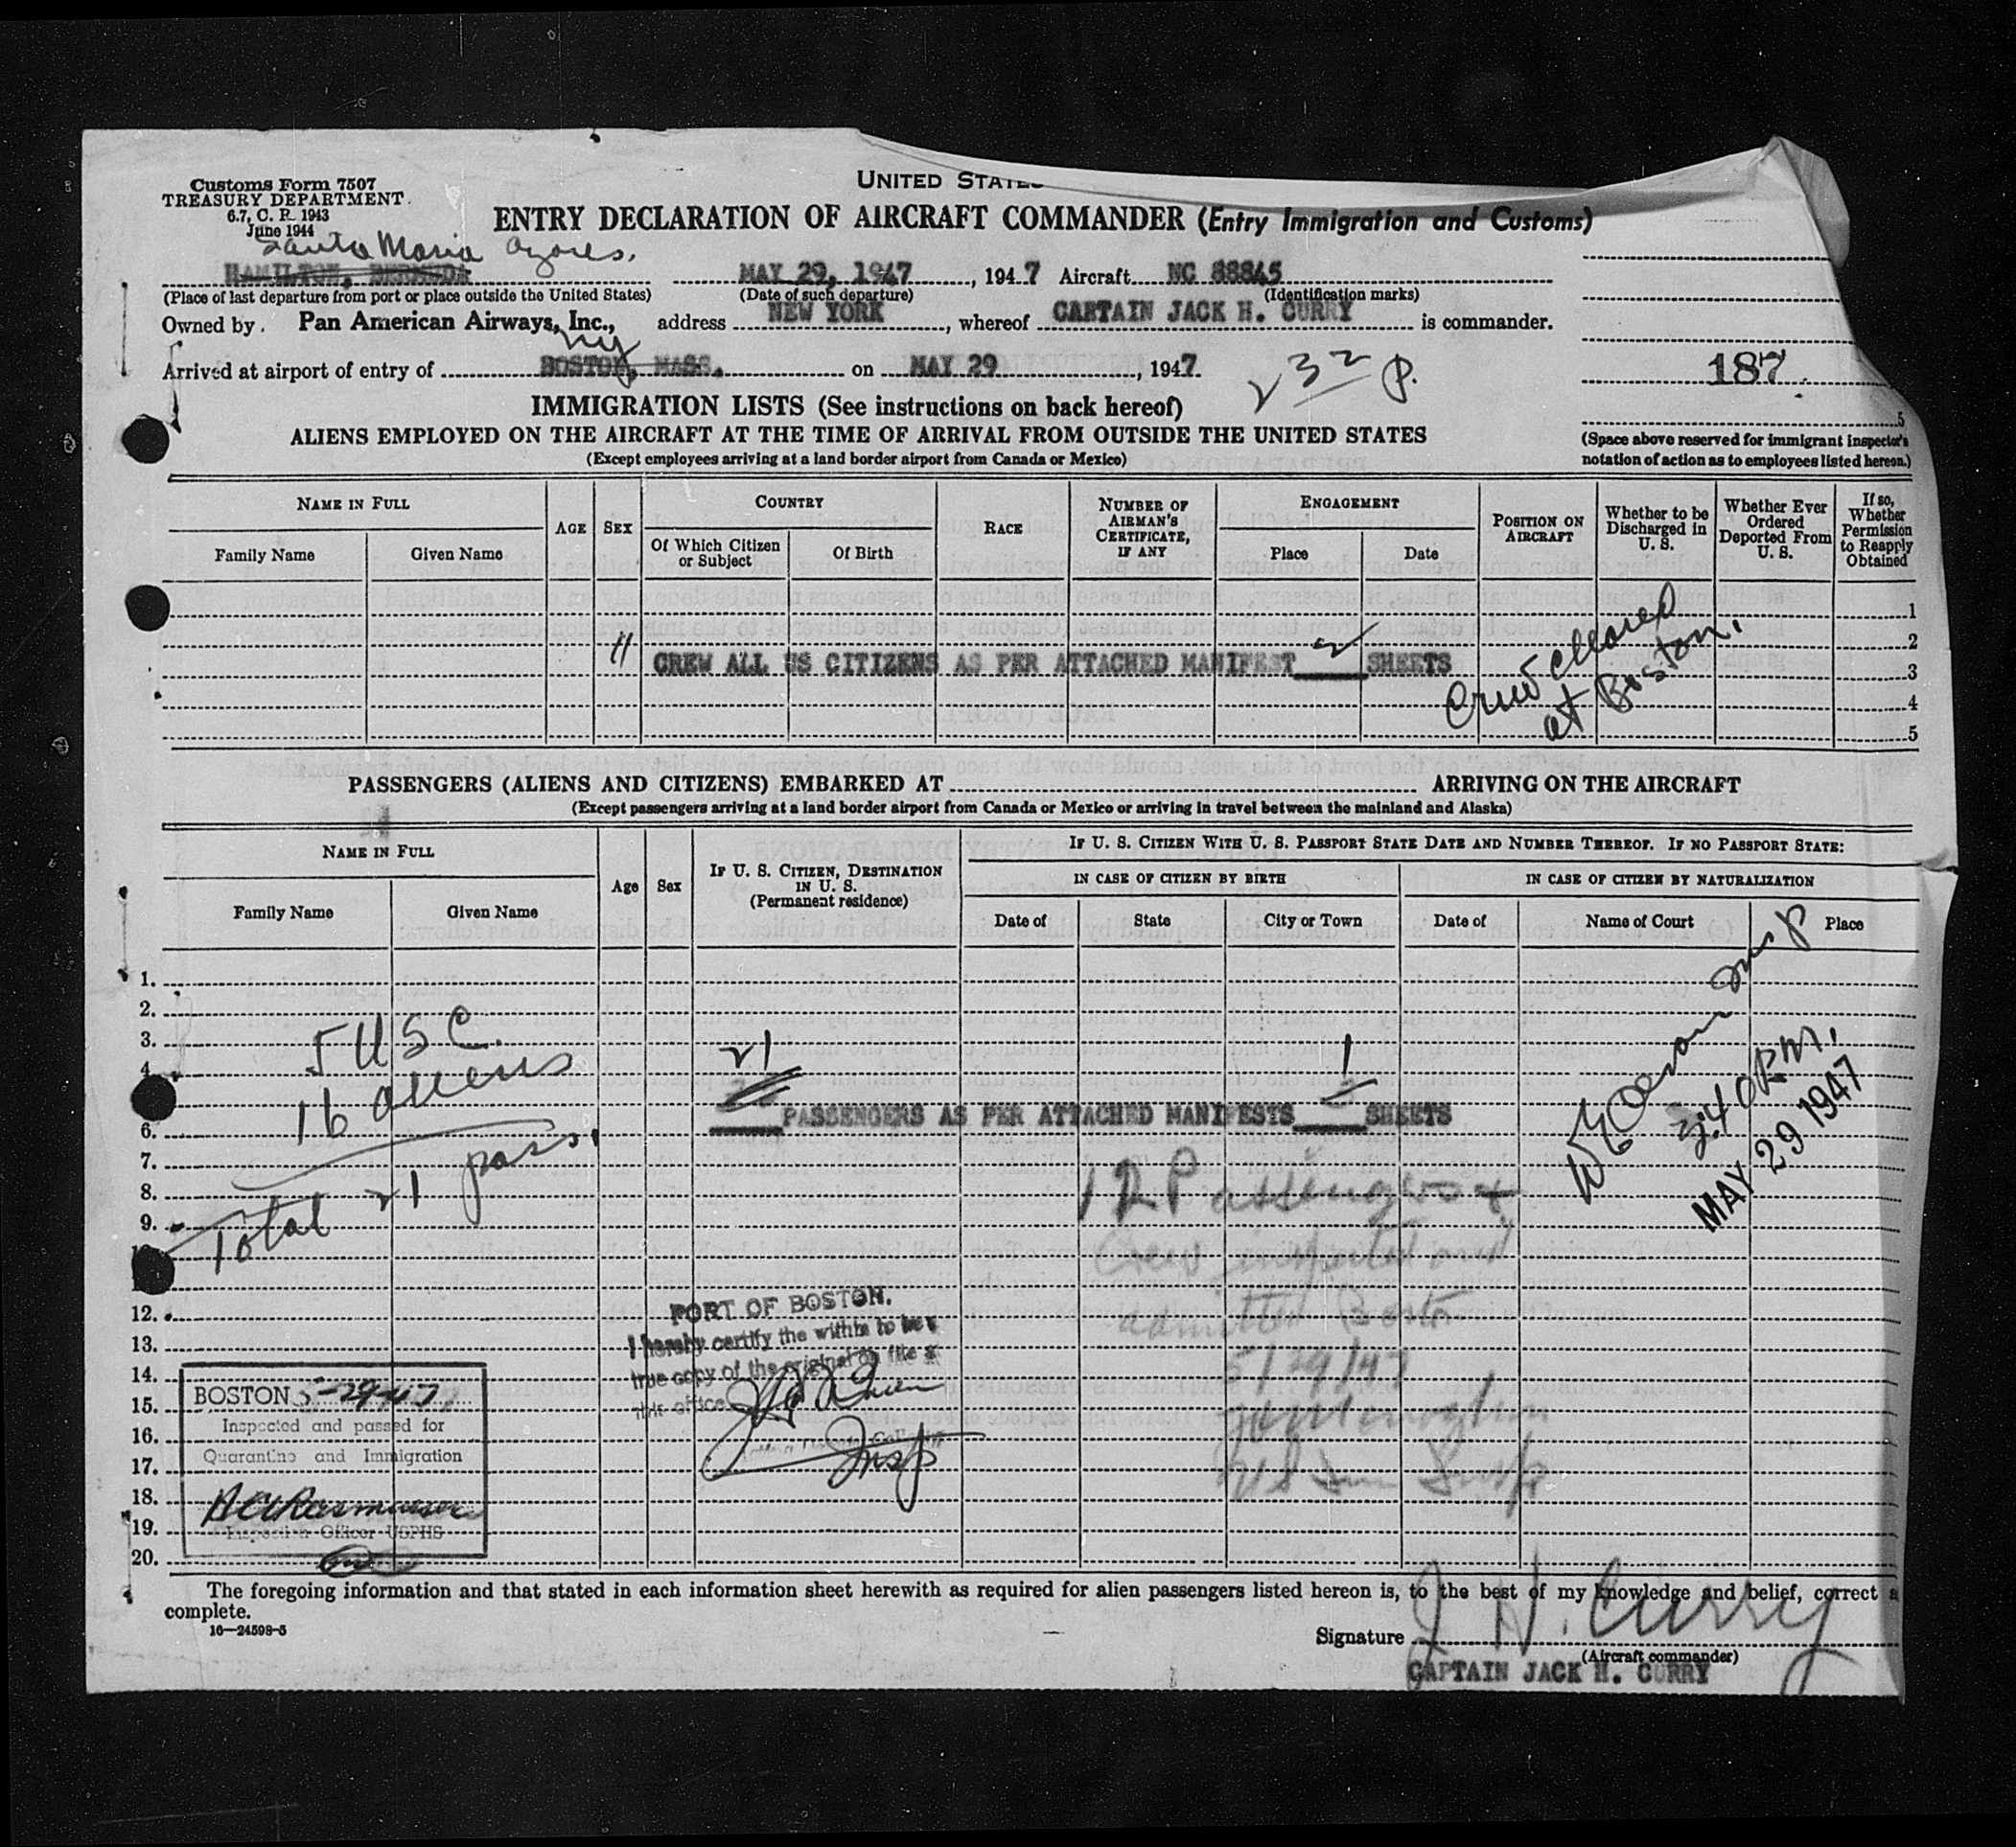 Customs Form 7507
TREASURY DEPARTMENT
6.7, C. R. 1943
June 1944
UNITED STATES
ENTRY DECLARATION OF AIRCRAFT COMMANDER (Entry Immigration and Customs)
Santa Maria Azores.
HAMILTON, BERMUDA MAY 29, 1947, 194 7 Aircraft NC 88845
(Place of last departure from port or place outside the United States) (Date of such departure) (Identification marks)
Owned by Pan American Airways, Inc., address NEW YORK, whereof CAPTAIN JACK H. CURRY is commander.
NY
Arrived at airport of entry of BOSTON, MASS. on MAY 29, 1947.
232 P.
187
IMMIGRATION LISTS (See instructions on back hereof)
ALIENS EMPLOYED ON THE AIRCRAFT AT THE TIME OF ARRIVAL FROM OUTSIDE THE UNITED STATES
(Except employees arriving at a land border airport from Canada or Mexico)
5
(Space above reserved for immigrant inspector's
notation of action as to employees listed hereon.)
NAME IN FULL
Family Name Given Name
AGE SEX
COUNTRY
Of Which Citizen or Subject Of Birth
RACE
NUMBER OF AIRMAN'S CERTIFICATE, IF ANY
ENGAGEMENT
Place Date
POSITION ON AIRCRAFT
Whether to be Discharged in U. S.
Whether Ever Ordered Deported From U. S.
If so, Whether Permission to Reapply Obtained
1
2
3
4
5
11 CREW ALL US CITIZENS AS PER ATTACHED MANIFEST 2 SHEETS
Crew cleared
at Boston.
PASSENGERS (ALIENS AND CITIZENS) EMBARKED AT ARRIVING ON THE AIRCRAFT
(Except passengers arriving at a land border airport from Canada or Mexico or arriving in travel between the mainland and Alaska)
NAME IN FULL
Family Name Given Name
Age Sex
IF U. S. CITIZEN, DESTINATION IN U. S.
(Permanent residence)
IF U. S. CITIZEN WITH U. S. PASSPORT STATE DATE AND NUMBER THEREOF. IF NO PASSPORT STATE:
IN CASE OF CITIZEN BY BIRTH IN CASE OF CITIZEN BY NATURALIZATION
Date of State City or Town Date of Name of Court Place
1.
2.
3.
4.
6.
7.
8.
9.
12.
13.
14.
15.
16.
17.
18.
19.
20.
5 USC.
16 aliens
Total 21 pass.
21 1
PASSENGERS AS PER ATTACHED MANIFESTS SHEETS
Insp
3:40 P.M.
MAY 29 1947
12 Passengers &
Crew inspected and
admitted Boston
5/29/47
US Imm Insp
PORT OF BOSTON.
I hereby certify the within to be a
true copy of the original on file in
this office
Insp
BOSTON 5-29-47
Inspected and passed for
Quarantine and Immigration
Inspection Officer USPHS
The foregoing information and that stated in each information sheet herewith as required for alien passengers listed hereon is, to the best of my knowledge and belief, correct a
complete.
16—24598-5
Signature J. H. Curry
(Aircraft commander)
CAPTAIN JACK H. CURRY